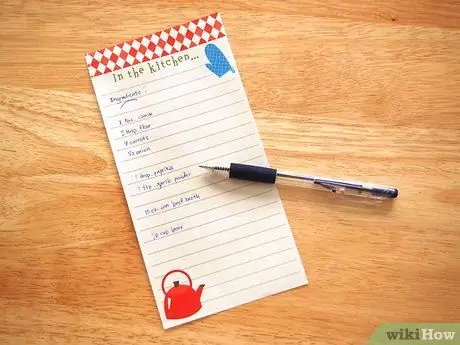 In the kitchen...
Ingredients:
2 lbs. chuck
flour
4 carrots
1/2 onion
1 tbsp. paprika
1 tsp. garlic powder
10 oz. can beef broth
1/2 cup beer
wikiHow